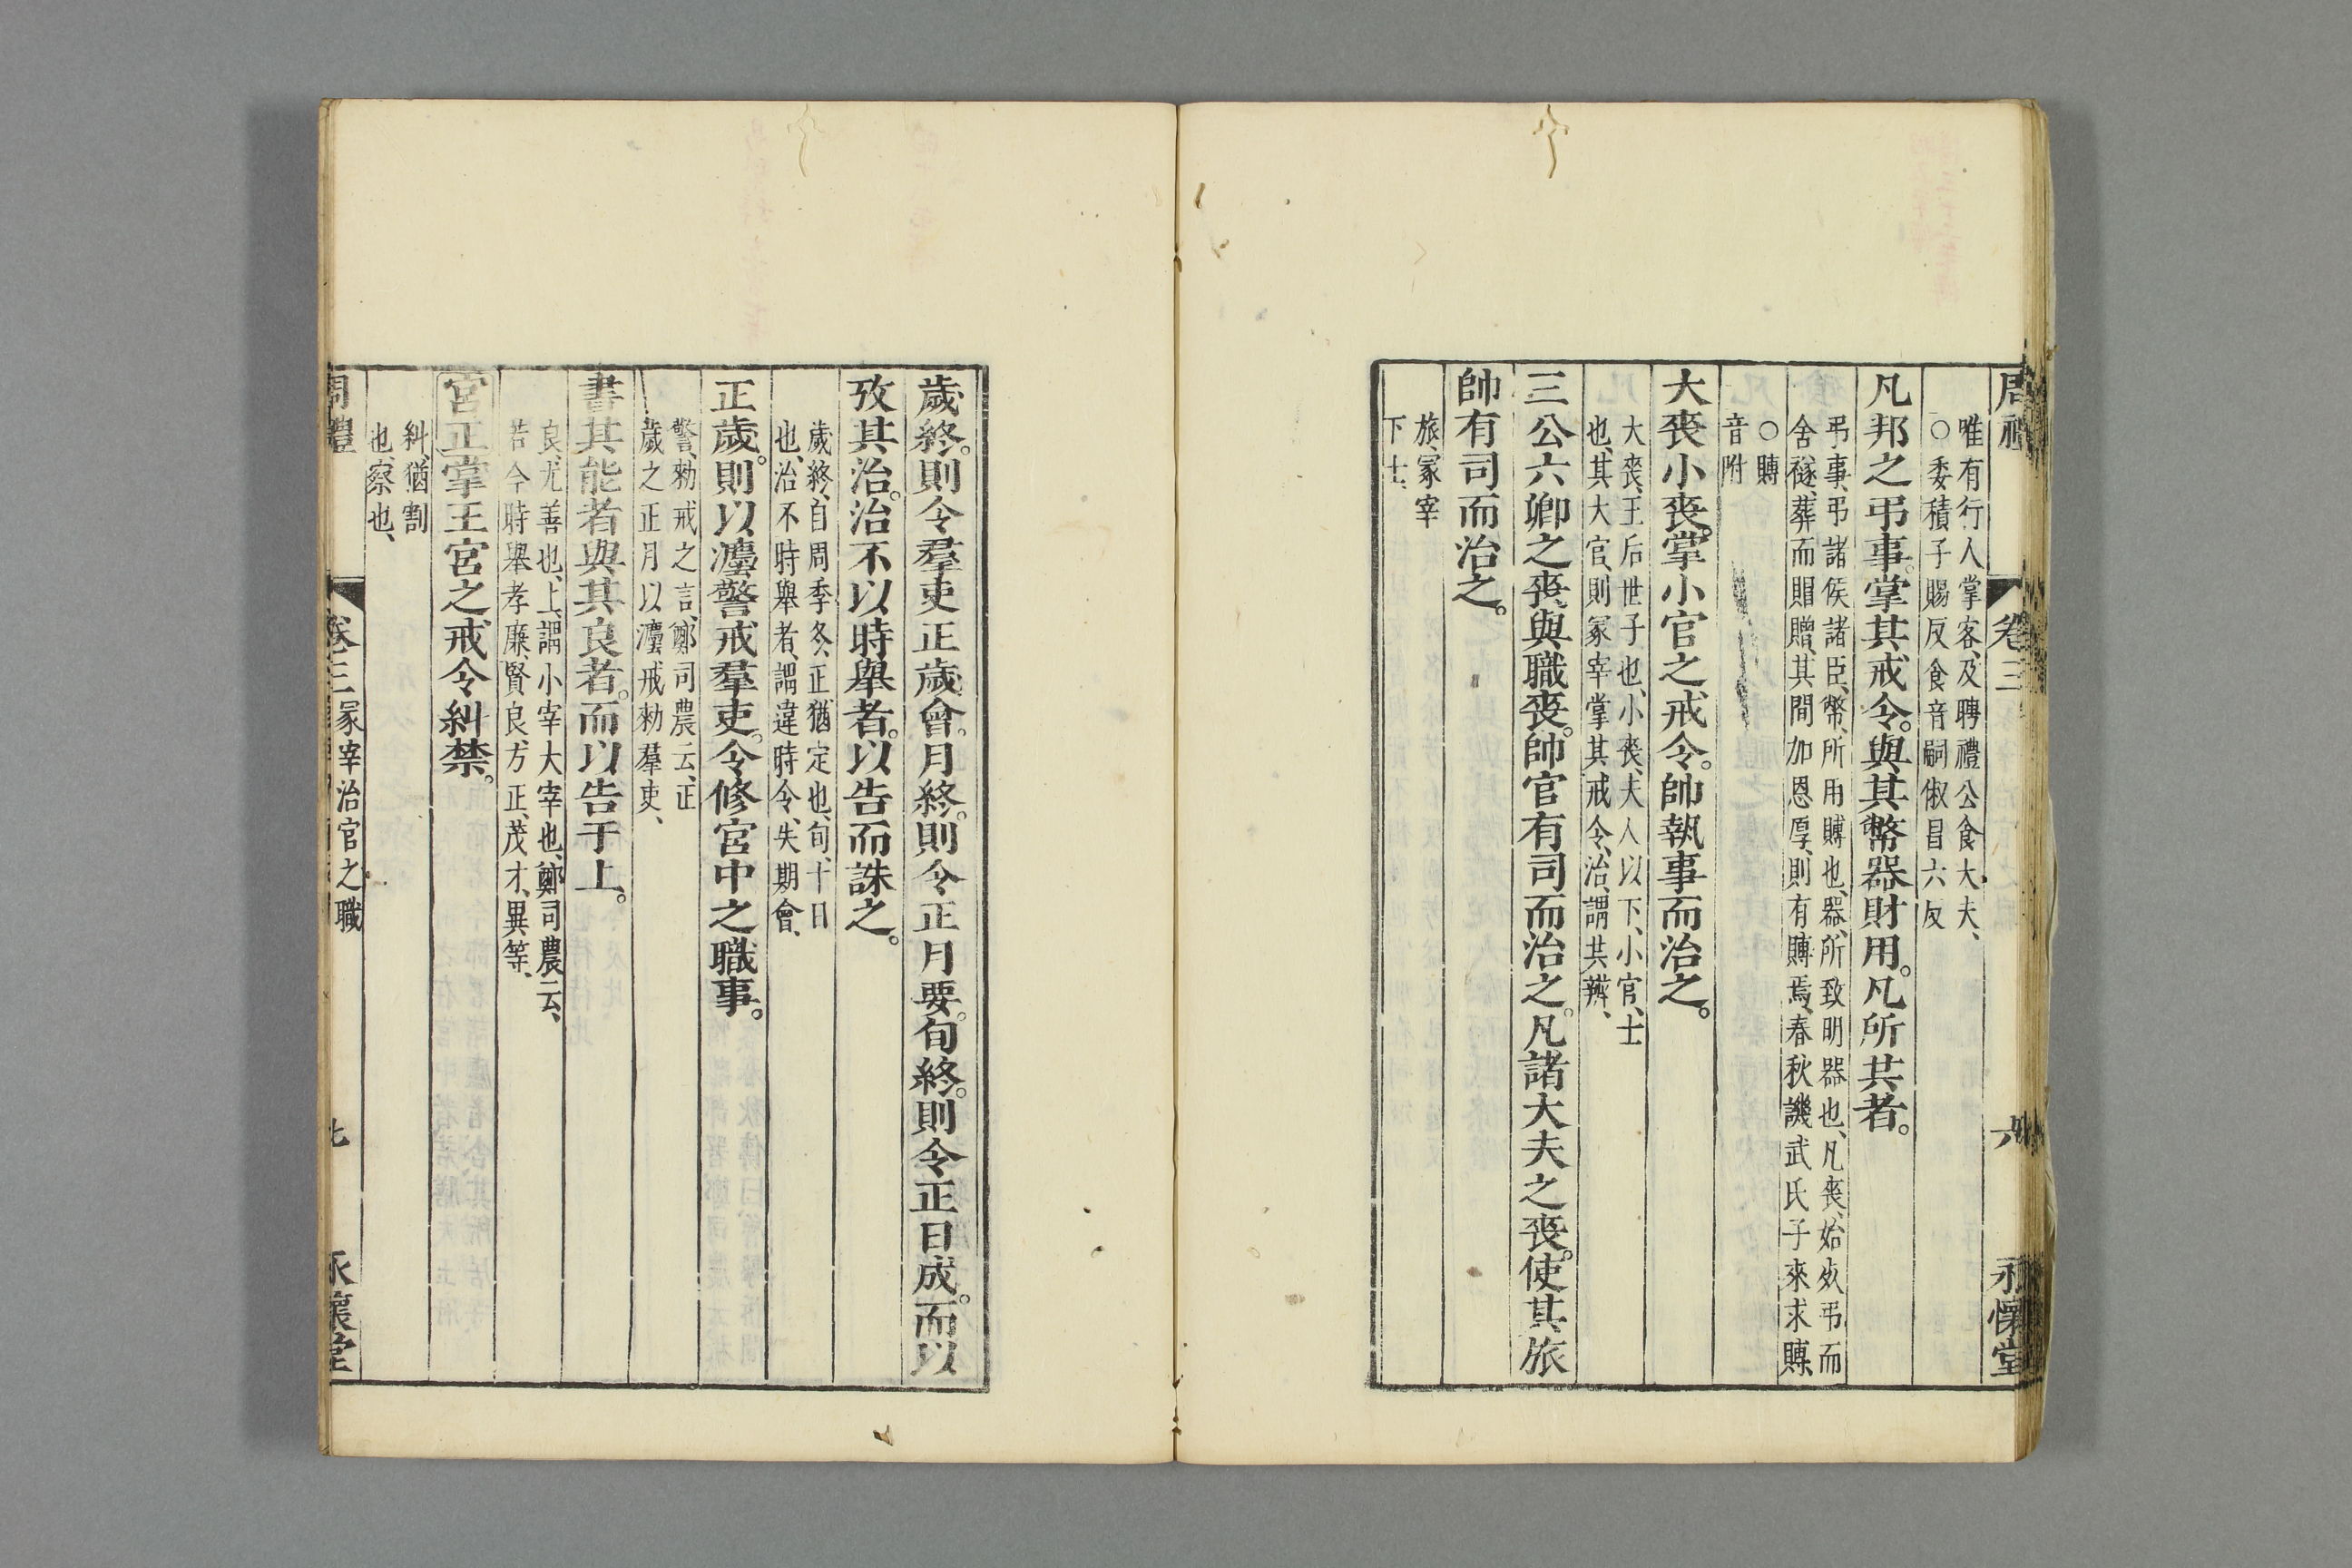 周禮 卷三 六 永懷堂
唯有行人掌客、及聘禮公食大夫、
○委積子賜反食音嗣俶昌六反
凡邦之弔事。掌其戒令。與其幣器財用。凡所共者。
弔事、弔諸侯諸臣、幣、所用賻也、器、所致明器也、凡喪、始死弔而
含襚、葬而賵贈、其間加恩厚、則有賻焉、春秋譏武氏子來求賻、
○賻
音附
大喪小喪。掌小官之戒令。帥執事而治之。
大喪、王后世子也、小喪、夫人以下、小官、士
也、其大官、則冢宰掌其戒令、治、謂共辨、
三公六卿之喪。與職喪。帥官有司而治之。凡諸大夫之喪。使其旅
帥有司而治之。
旅、冢宰
下士、
歲終。則令羣吏正歲會。月終。則令正月要。旬終。則令正日成。而以
攷其治。治不以時舉者。以告而誅之。
歲終、自周季冬、正猶定也、旬、十日
也、治不時舉者、謂違時令、失期會、
正歲。則以灋警戒羣吏。令修宮中之職事。
警、勑戒之言、鄭司農云、正
歲之正月以灋戒勑羣吏、
書其能者與其良者。而以告于上。
良尤善也、上、謂小宰大宰也、鄭司農云、
若今時舉孝廉、賢良、方正、茂才、異等、
宮正掌王宮之戒令糾禁。
糾、猶割
也、察也、
周禮 卷三 冢宰治官之職 七 永懷堂